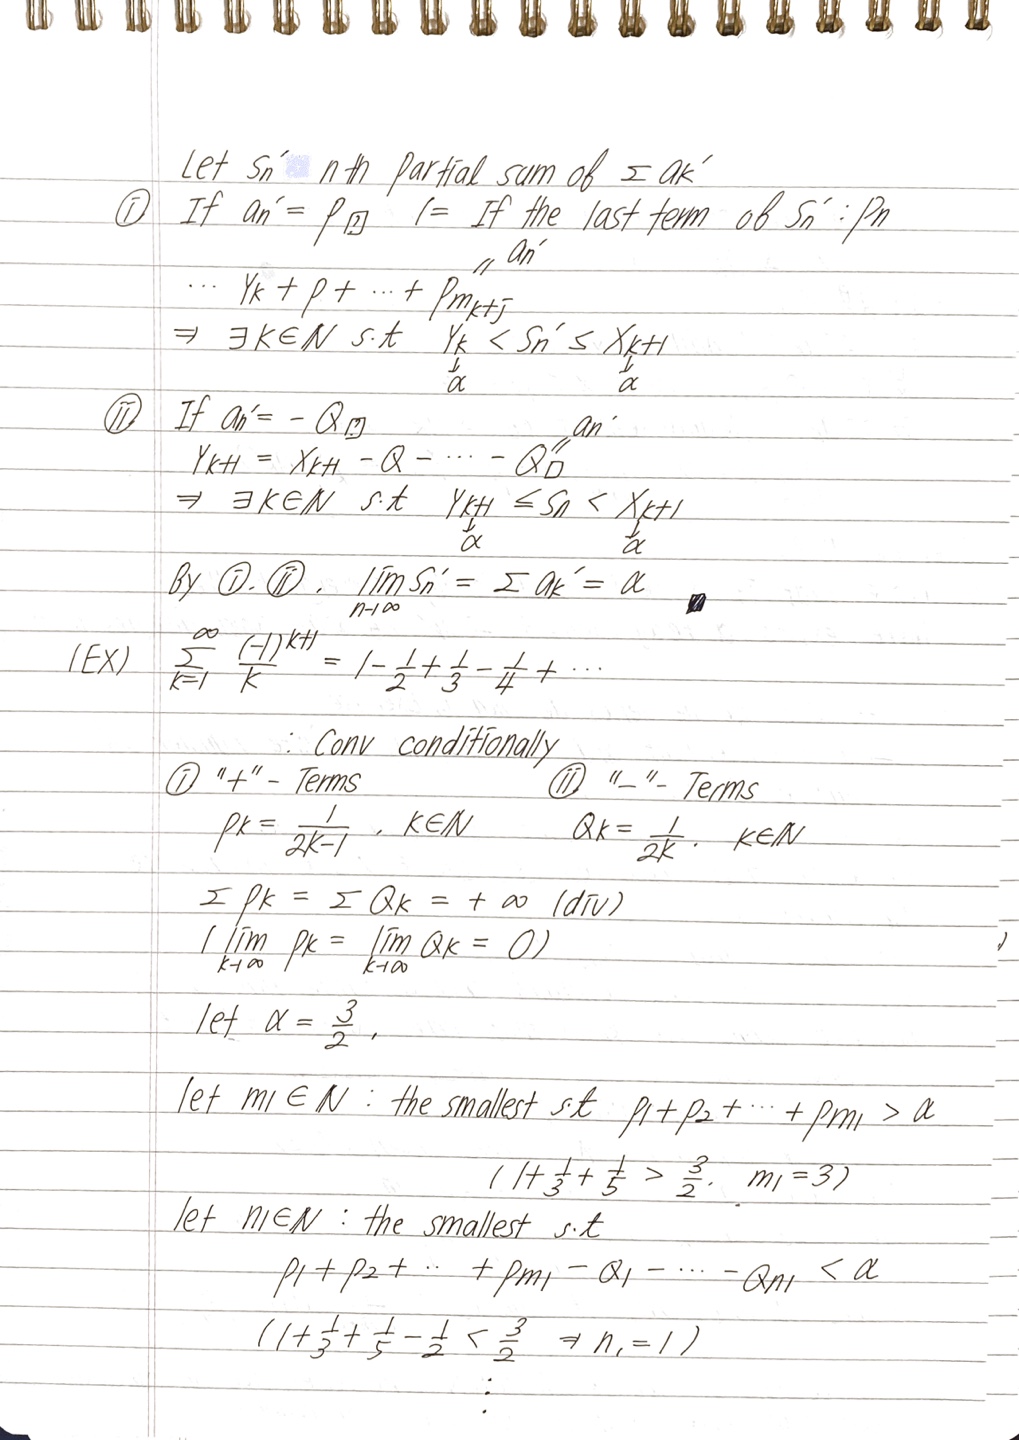 Let Sn′ nth partial sum of Σ ak′
ⓘ If an′ = P[?] (= If the last term of Sn′ : Pn
〃 an′
⋯ Yk + P + ⋯ + Pmk+j
⇒ ∃k∈ℕ s.t Yk < Sn′ ≤ Xk+1
↓ ↓
α α
ⓘⓘ If an′ = - Q[?]
〃 an′
Yk+1 = Xk+1 - Q - ⋯ - Q□
⇒ ∃k∈ℕ s.t Yk+1 ≤ Sn < Xk+1
↓ ↓
α α
By ⓘ. ⓘⓘ. lim n→∞ Sn′ = Σ ak′ = α ■
(EX) ∞ Σ k=1 (-1)^k+1 / k = 1 - 1/2 + 1/3 - 1/4 + ⋯
: Conv conditionally
ⓘ "+" - Terms ⓘⓘ "-" - Terms
Pk = 1/2k-1 . k∈ℕ Qk = 1/2k . k∈ℕ
Σ Pk = Σ Qk = + ∞ (div)
( lim k→∞ Pk = lim k→∞ Qk = 0 )
let α = 3/2 ,
let m1 ∈ ℕ : the smallest s.t P1 + P2 + ⋯ + Pm1 > α
( 1 + 1/3 + 1/5 > 3/2 . m1 = 3 )
let n1∈ℕ : the smallest s.t
P1 + P2 + ‥ + Pm1 - Q1 - ⋯ - Qn1 < α
( 1 + 1/3 + 1/5 - 1/2 < 3/2 ⇒ n1 = 1 )
⋮